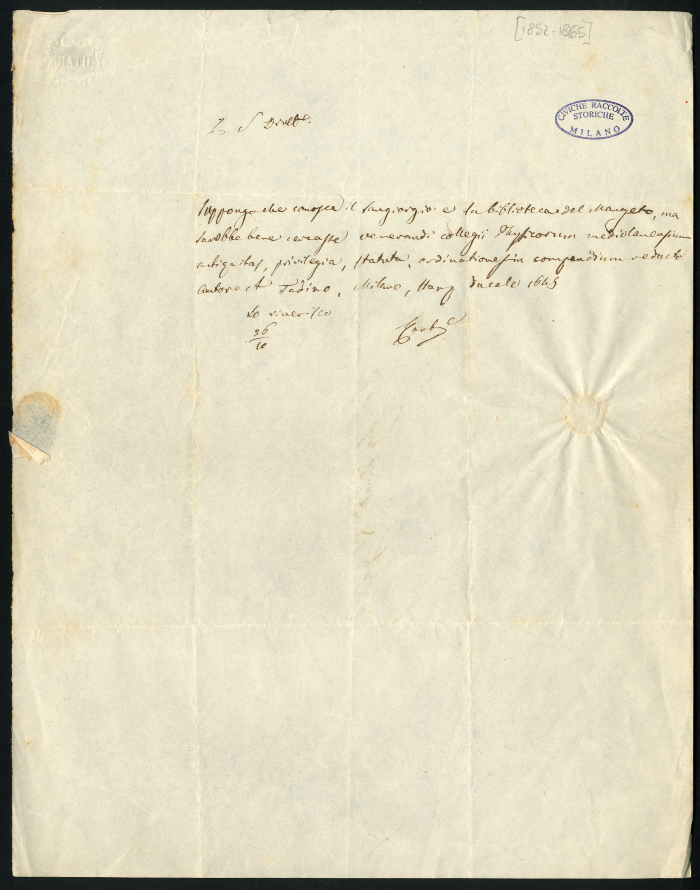 [1852-1865]
CIVICHE RACCOLTE
STORICHE
MILANO
S Dirett.
Suppongo che conosca il Sangiorgio e la biblioteca del Mangeto, ma
sarebbe bene cercasse venerandi collegii Physicorum mediolanensium
antiquitas, privilegia, statuta, ordinationes in compendium reducta
autore A Tadino, Milano, Stamp ducale 1645
Lo riverisco
26
10